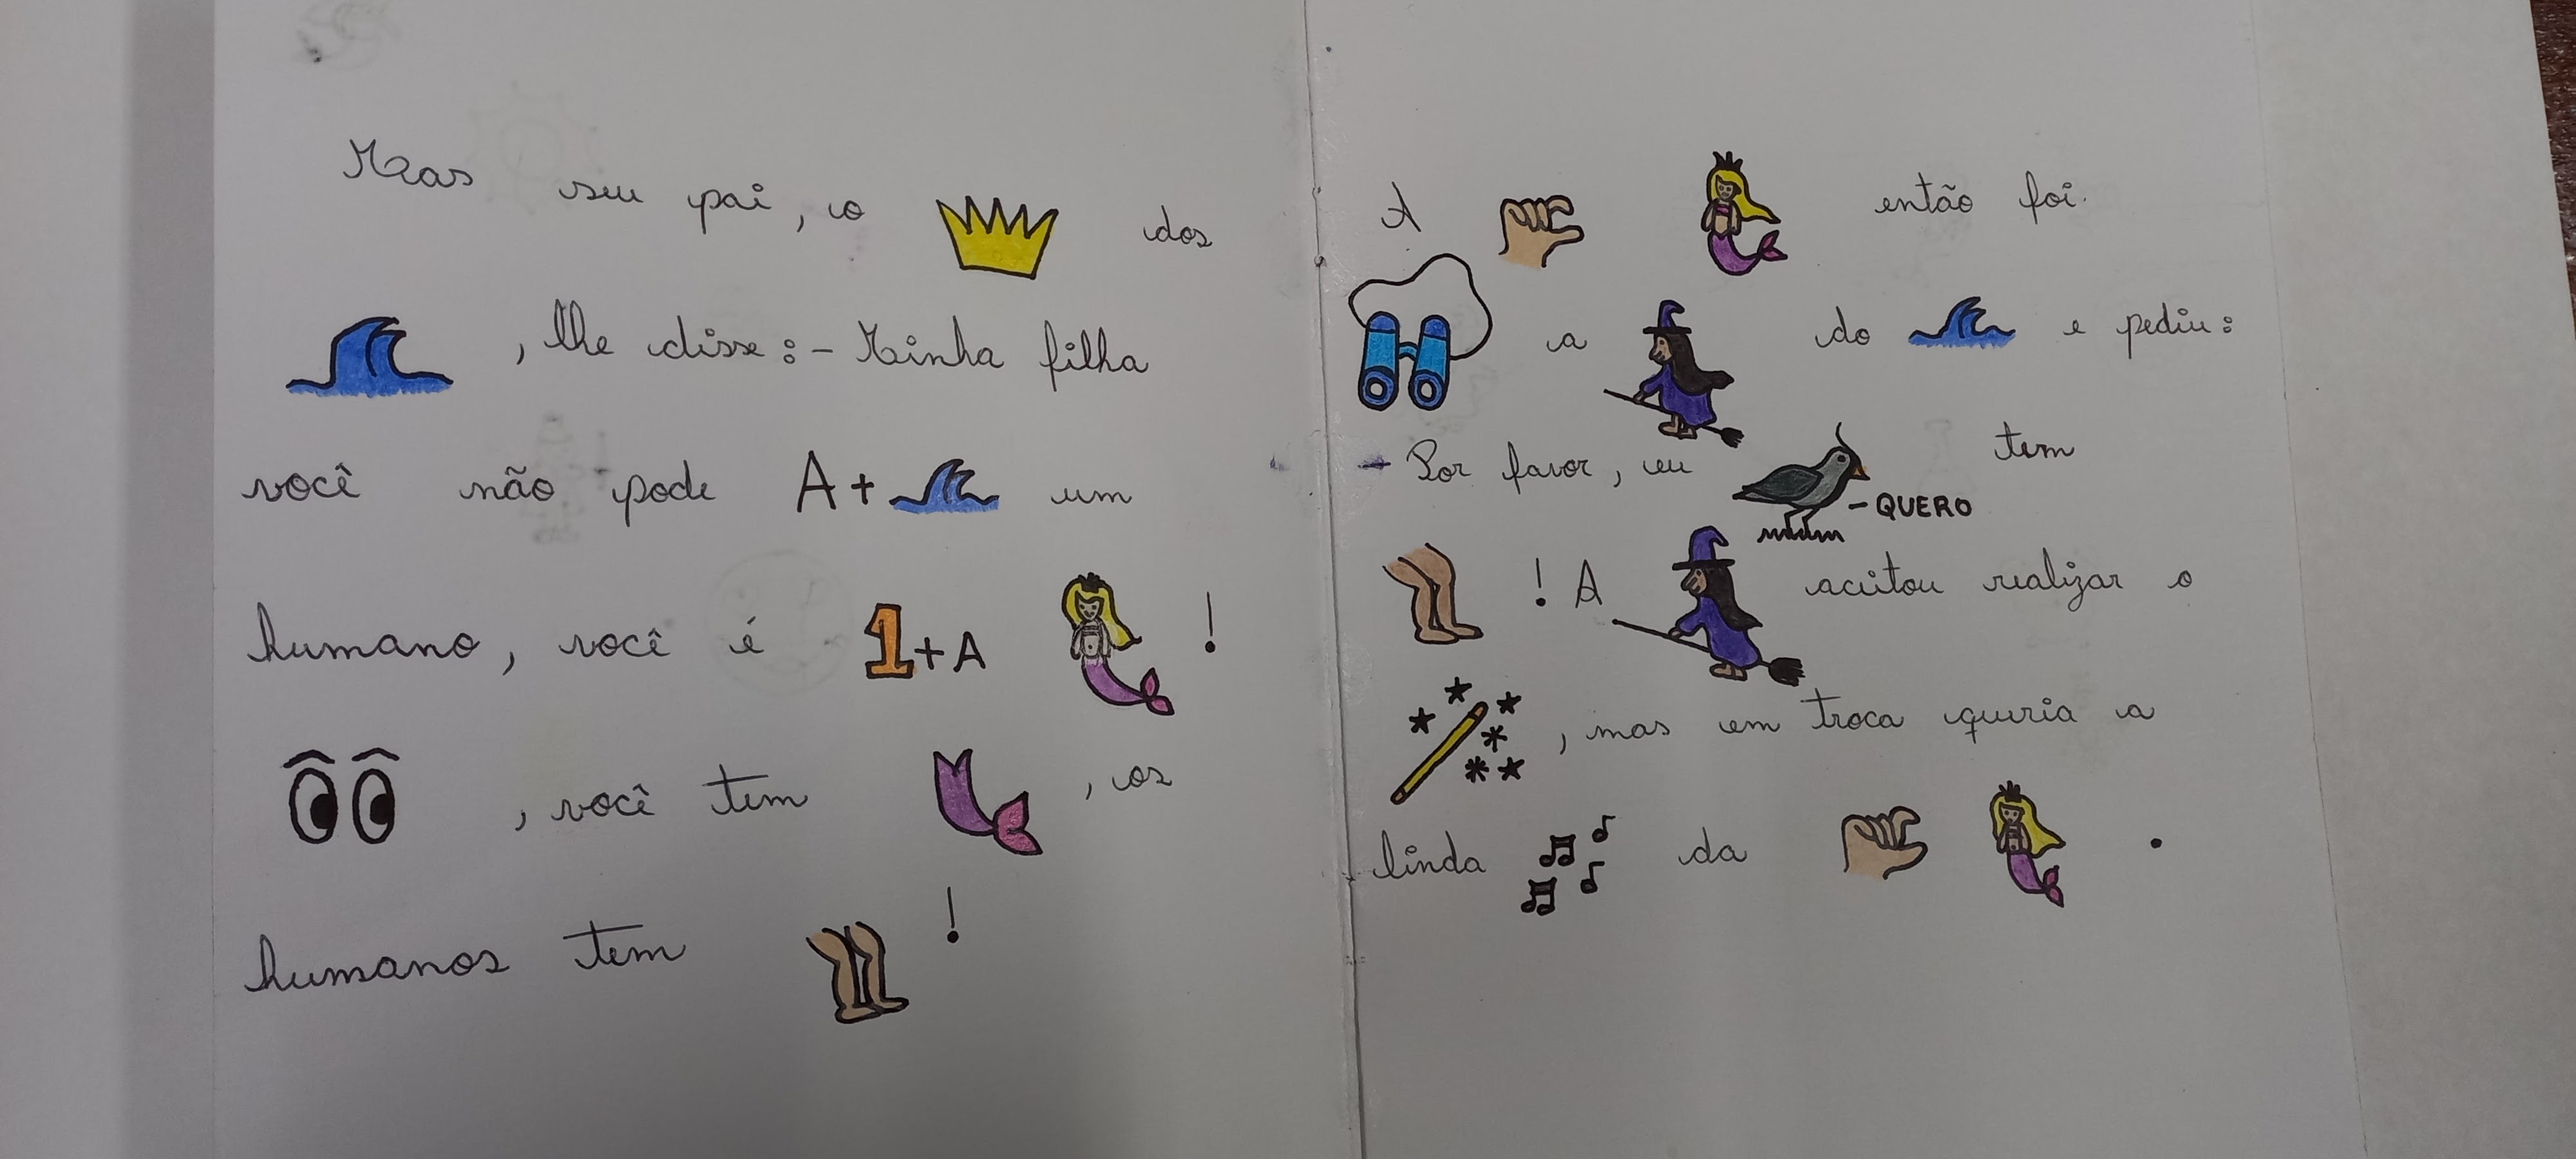 Mas seu pai, o dos
, lhe disse: - Minha filha
você não pode A+ um
humano, você é 1+A !
, você tem , os
humanos tem !
A então foi
a do e pediu:
- Por favor, eu - QUERO tem
! A aceitou realizar o
, mas em troca queria a
linda da .